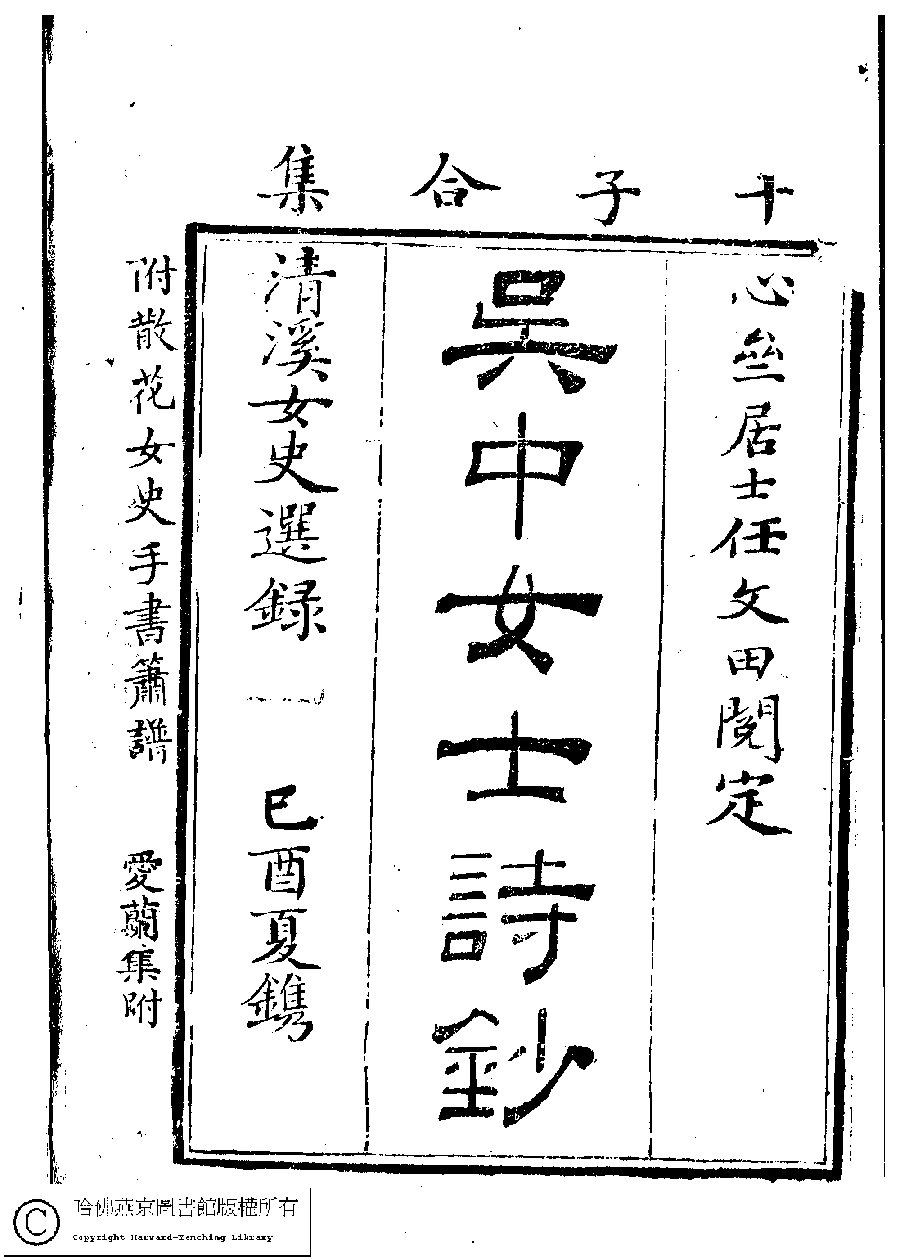 十子合集
心亝居士任文田閱定
吳中女士詩鈔
清溪女史選録 己酉夏鐫
附散花女史手書簫譜 愛蘭集附
哈佛燕京圖書館版權所有
Copyright Harvard-Yenching Library